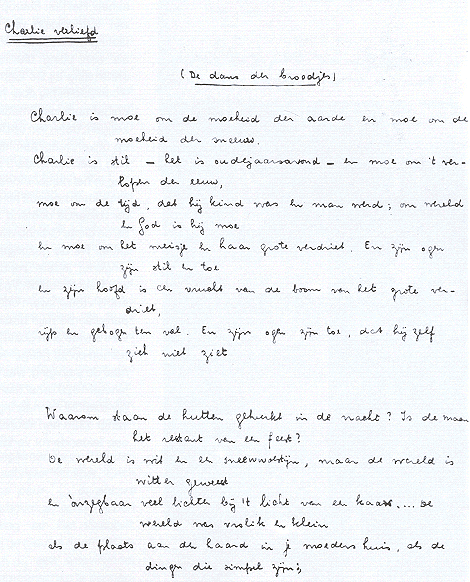 Charlie verliefd
(De dans der broodjes)
Charlie is moe om de moeheid der aarde en moe om de
moeheid der sneeuw.
Charlie is stil – het is oudejaarsavond – en moe om 't ver-
lopen der eeuw,
moe om de tijd, dat hij kind was en man werd; om wereld
en God is hij moe
en moe om het meisje en haar grote verdriet. En zijn ogen
zijn stil en toe
en zijn hoofd is een vrucht van de boom van het grote ver-
driet,
rijp en gebogen ten val. En zijn ogen zijn toe, dat hij zelf
zich niet ziet
Waarom staan de hutten gehurkt in de nacht? Is de maan
het restant van een feest?
De wereld is wit en een sneeuwwoestijn, maar de wereld is
witter geweest
en onzegbaar veel lichter bij 't licht van een kaars.... De
wereld was vrolik en klein
als de plaats aan de haard in je moeders huis, als de
dingen die simpel zijn;